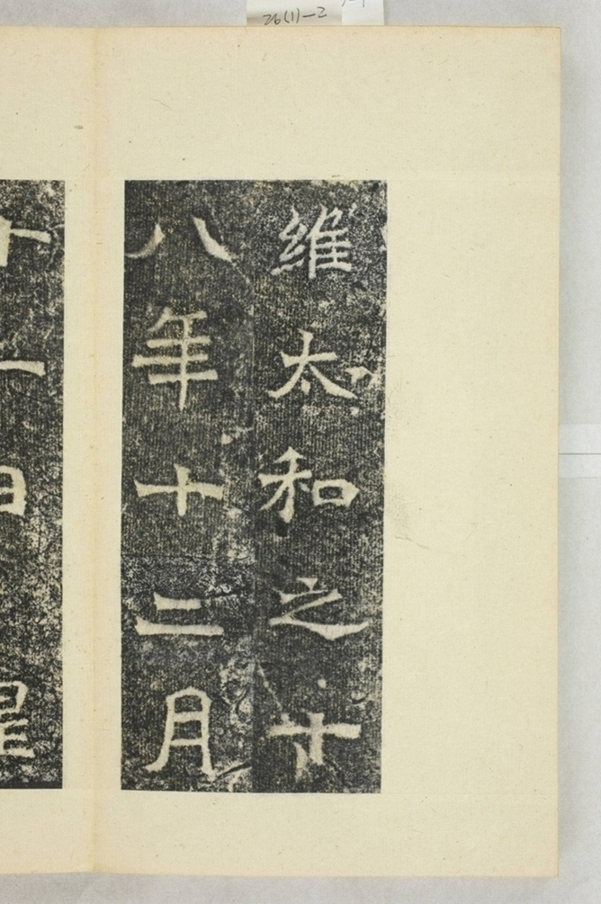 26(1)-2
維太和之十
八年十二月
十一日